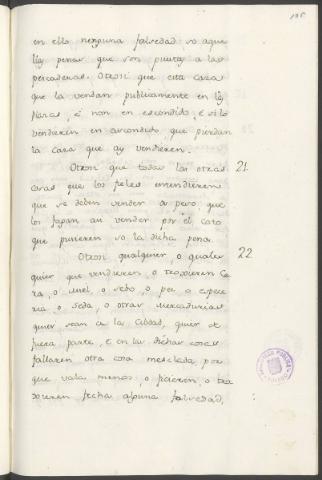 en ello ninguna falsedad so aque
llas penas que son puestas a las
pescaderas. Otrosi que esta caza
que la vendan publicamente en las
plazas, é non en escondido, é si lo
vendieren en ascondido, que pierdan
la caza que ay vendieren.
Otrosi que todas las otras 21
cosas que los fieles entendieren
que se deben vender a peso, que
los fagan asi vender por el coto
que pusieren so la dicha pena.
Otrosi qualquier, o quales 22
quier que vendieren, o troxieren Ce
ra, o miel, o sebo, o pez, o espece
ria, o seda, o otras mercadurias
quier sean de la Cibdad, quier de
fuera parte, e en las dichas cosas
fallaren otra cosa mesclada por
que vala menos, o ficieren, o tra
xieren fecha alguna falsedad,